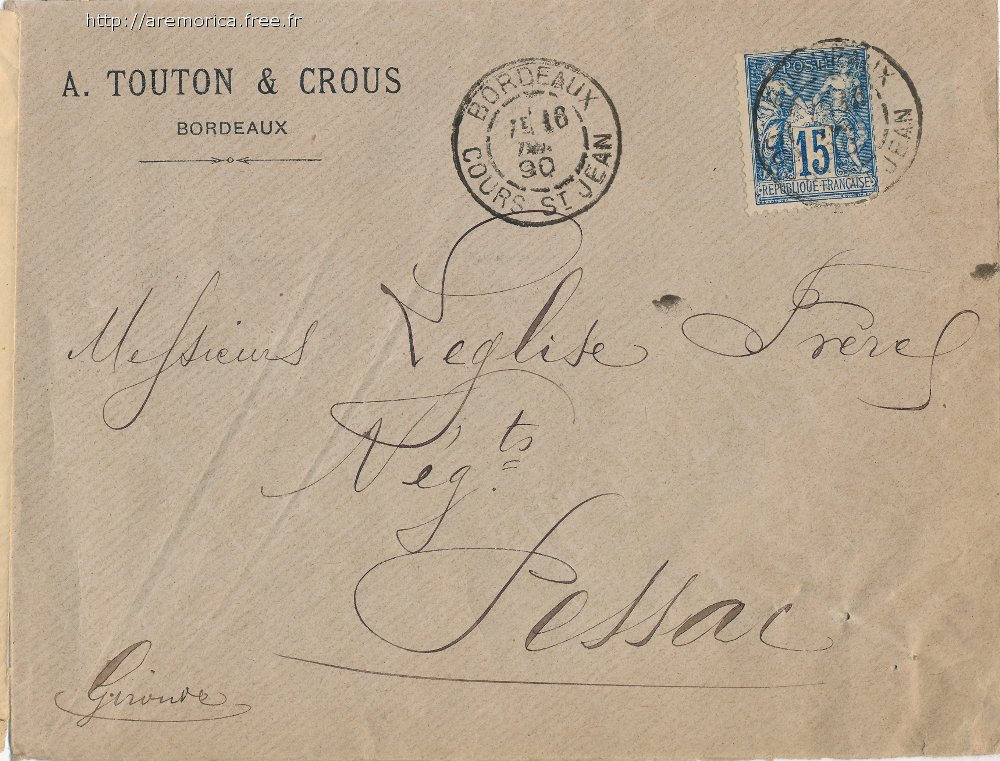 http://aremorica.free.fr
A. TOUTON & CROUS
BORDEAUX
BORDEAUX
18
90
COURS ST JEAN
POSTES
15
REPUBLIQUE FRANÇAISE
JEAN
Messieurs Léglise Frères
Nég.ts
Pessac
Gironde